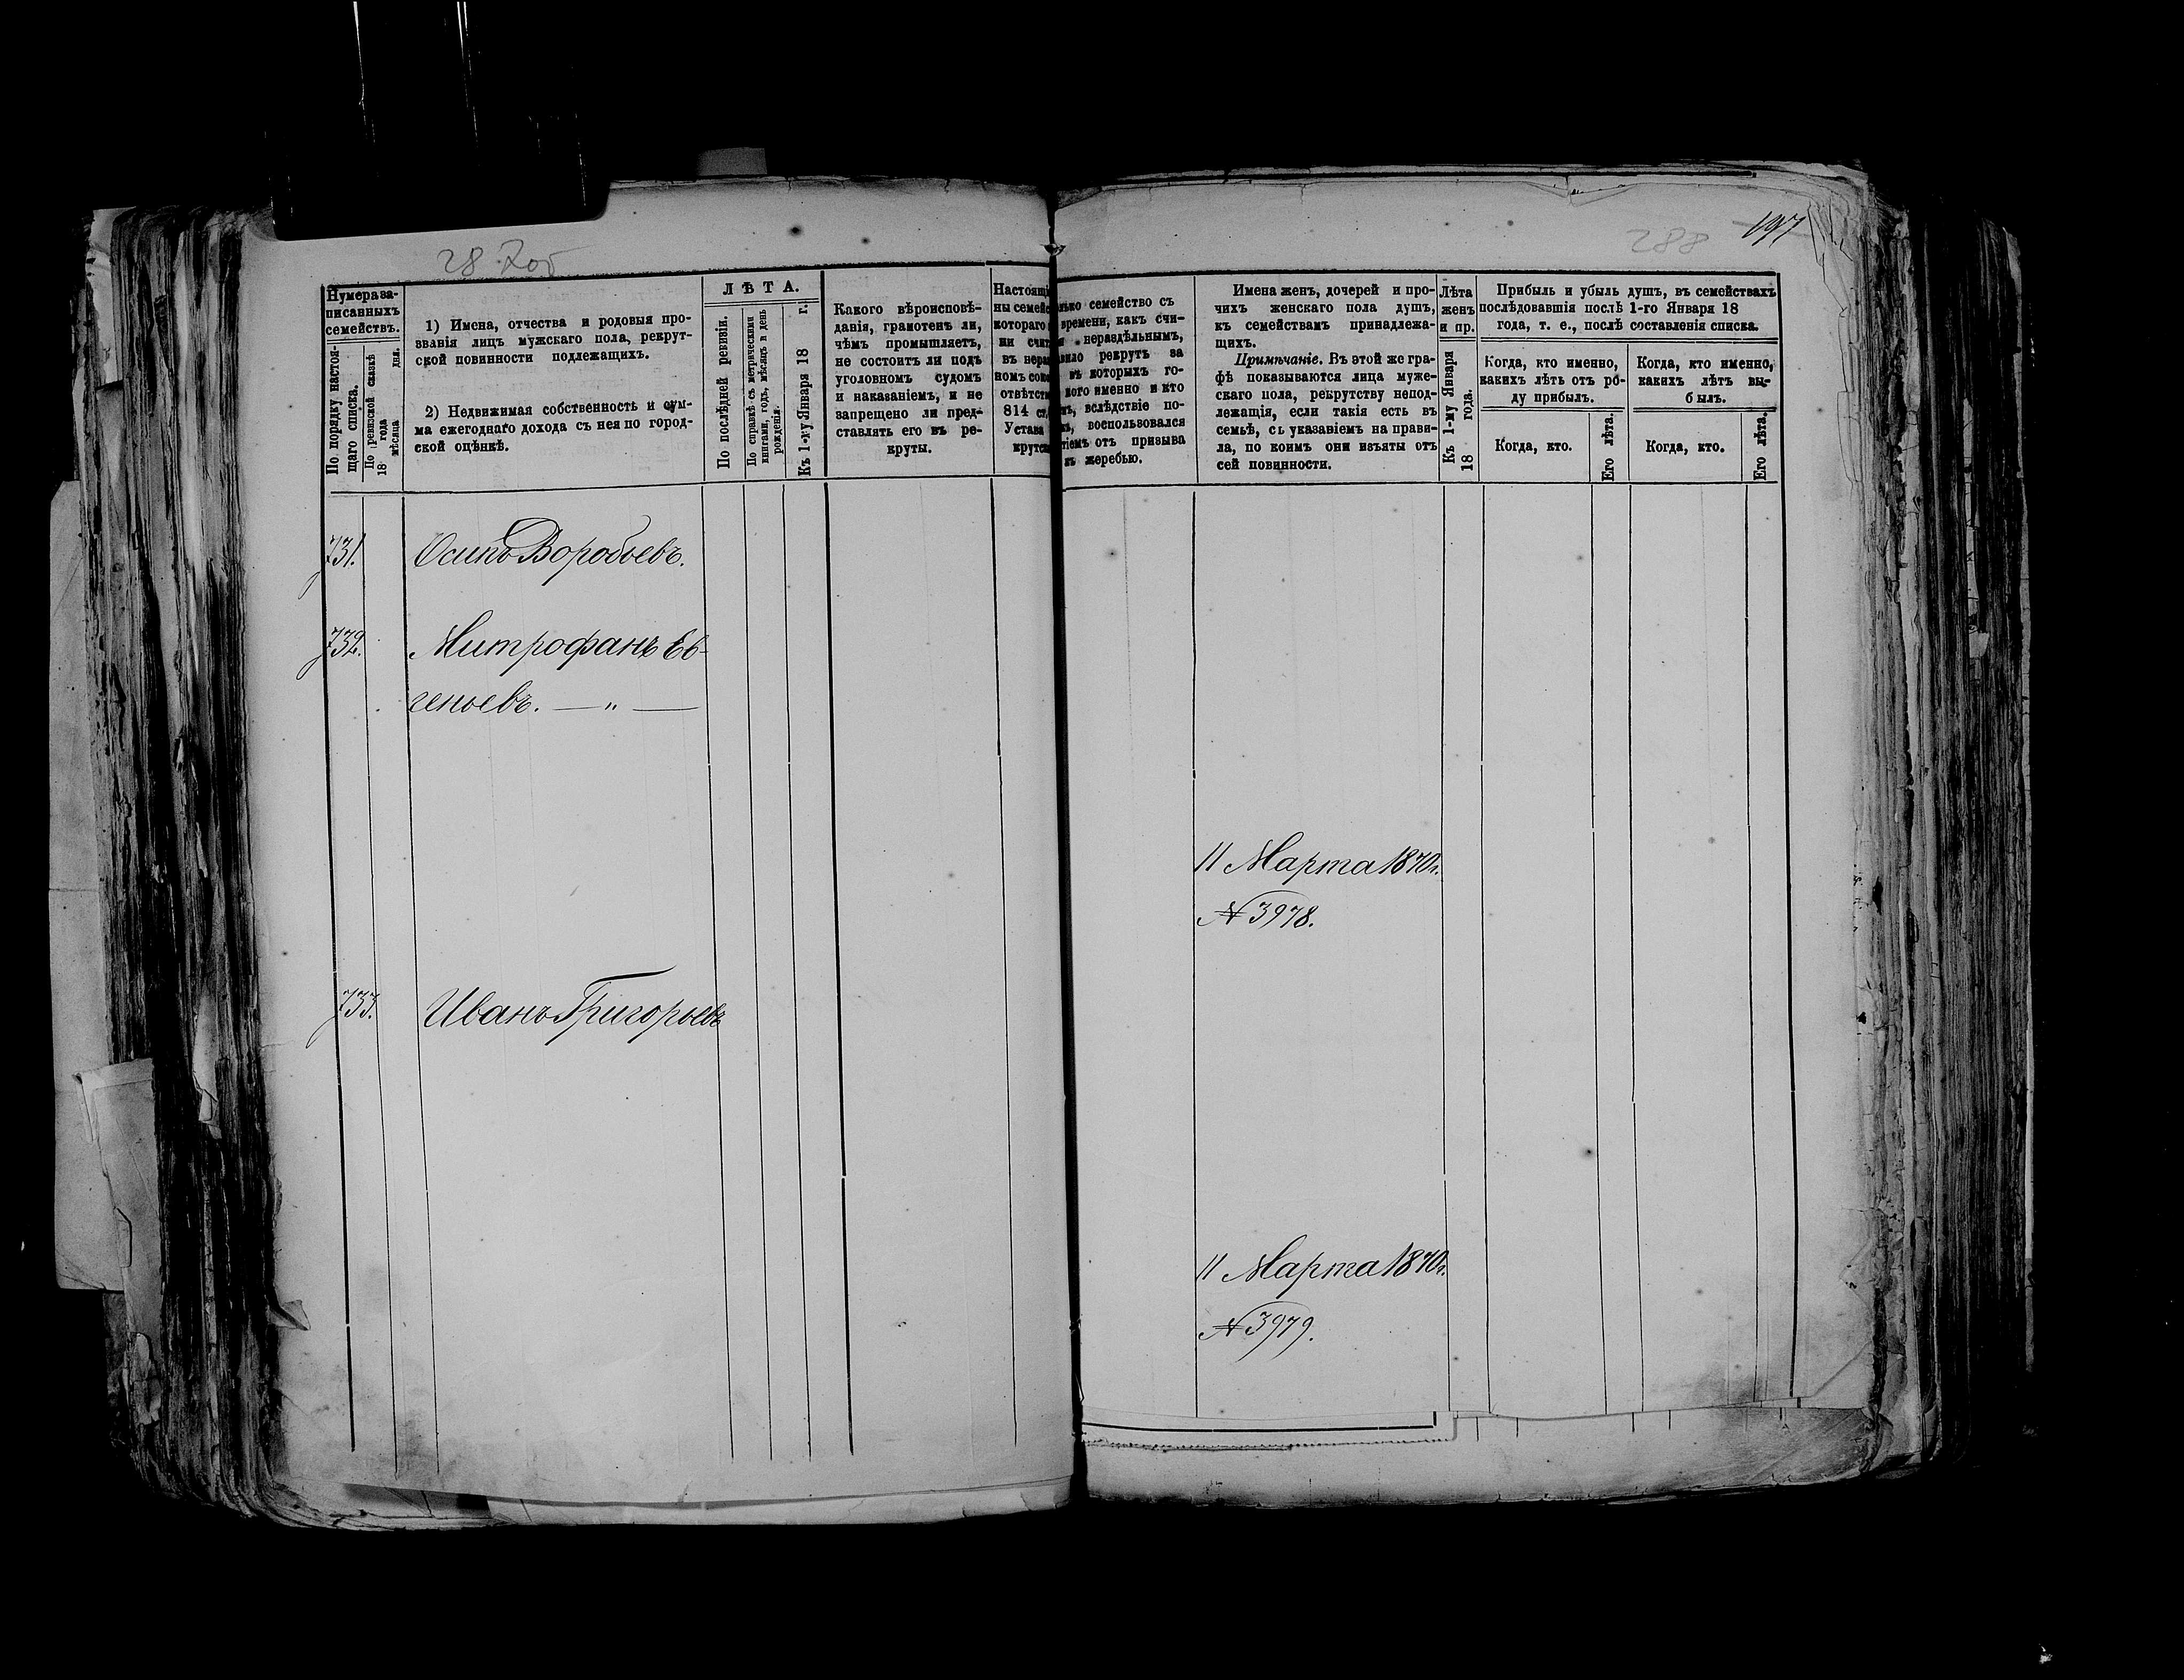 28  7об
288
197
Нумера за-
писанныхъ
семействъ.
По порядку настоя-
щаго списка.
По ревизской сказкѣ
18 года
мѣсяца дня.
1) Имена, отчества и родовыя про-
званія лицъ мужскаго пола, рекрут-
ской повинности подлежащихъ.
2) Недвижимая собственность и сум-
ма ежегоднаго дохода съ нея по город-
ской оцѣнкѣ.
ЛѢТА.
По послѣдней ревизіи.
По справкѣ съ метрическими
книгами, годъ, мѣсяцъ и день
рожденія.
Къ 1-му Января 18 г.
Какого вѣроисповѣ-
данія, грамотенъ ли,
чѣмъ промышляетъ,
не состоитъ ли подъ
уголовномъ судомъ
и наказаніемъ, и не
запрещено ли пред-
ставлять его въ ре-
круты.
Настоящ
ны семей
котораго
ни счит
въ нера
номъ со
отвѣтст
814 ст.
Устава
крутск
семейство съ
времени, какъ счи-
нераздѣльнымъ,
рекрутъ за
въ которыхъ го-
кого именно и кто
вслѣдствіе по-
воспользовался
тіемъ отъ призыва
жеребью.
Имена женъ, дочерей и про-
чихъ женскаго пола душъ,
къ семействамъ принадлежа-
щихъ.
Примѣчаніе. Въ этой же гра-
фѣ показываются лица муже-
скаго пола, рекрутству непод-
лежащія, если такія есть въ
семьѣ, съ указаніемъ на прави-
ла, по коимъ они изъяты отъ
сей повинности.
Лѣта
женъ
и пр.
Къ 1-му Января
18 года.
Прибыль и убыль душъ, въ семействахъ
послѣдовавшія послѣ 1-го Января 18
года, т. е., послѣ составленія списка.
Когда, кто именно,
какихъ лѣтъ отъ ро-
ду прибылъ.
Когда, кто.
Его лѣта.
Когда, кто именно,
какихъ лѣтъ вы-
былъ.
Когда, кто.
Его лѣта.
731. Осипъ Воробьевъ.
732. Митрофанъ Ев-
геньевъ. — „ —
11 Марта 1870 г.
№ 3978.
733. Иванъ Григорьевъ
11 Марта 1870 г.
№ 3979.